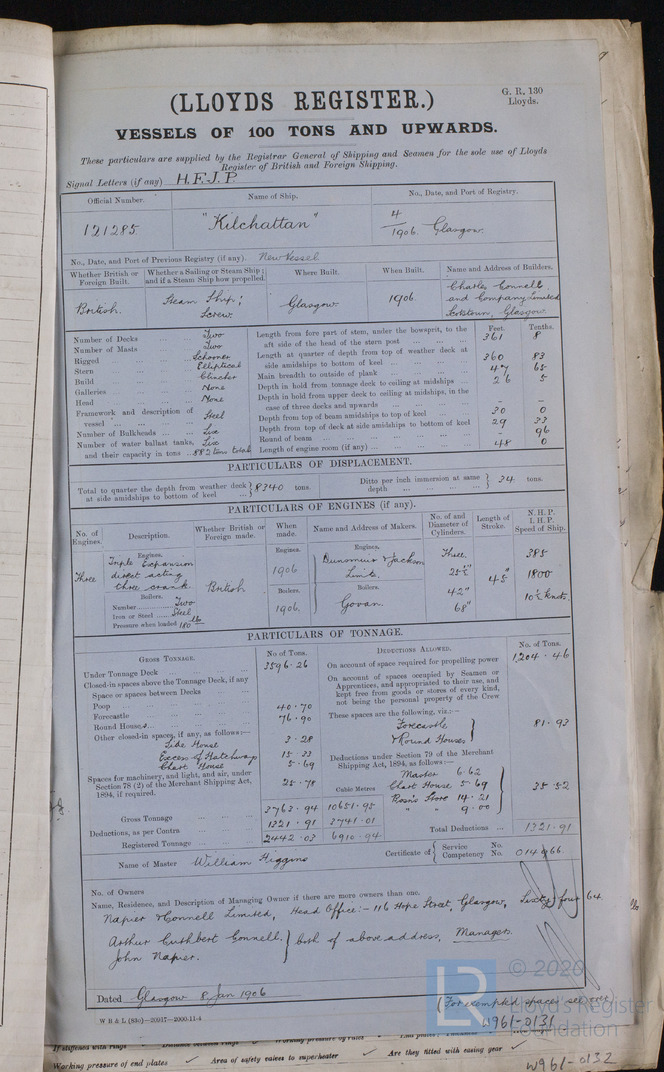 G. R. 130
Lloyds.
(LLOYDS REGISTER.)
VESSELS OF 100 TONS AND UPWARDS.
These particulars are supplied by the Registrar General of Shipping and Seamen for the sole use of Lloyds
Register of British and Foreign Shipping.
Signal Letters (if any) H.F.J.P.
Official Number. Name of Ship. No., Date, and Port of Registry.
121285 "Kilchattan" 4/1906. Glasgow.
No., Date, and Port of Previous Registry (if any). New Vessel
Whether British or Foreign Built. Whether a Sailing or Steam Ship; and if a Steam Ship how propelled. Where Built. When Built. Name and Address of Builders.
British. Steam Ship; Screw. Glasgow 1906. Charles Connell and Company Limited Scotstoun, Glasgow
Number of Decks ... Two
Number of Masts ... Two
Rigged ... Schooner
Stern ... Elliptical
Build ... Clincher
Galleries ... None
Head ... None
Framework and description of vessel ... Steel
Number of Bulkheads ... Six
Number of water ballast tanks, Six
and their capacity in tons ... 882 tons total
Feet. Tenths.
Length from fore part of stem, under the bowsprit, to the
aft side of the head of the stern post ... 361 8
Length at quarter of depth from top of weather deck at
side amidships to bottom of keel ... 360 83
Main breadth to outside of plank ... 47 65
Depth in hold from tonnage deck to ceiling at midships ... 26 5
Depth in hold from upper deck to ceiling at midships, in the
case of three decks and upwards ... - -
Depth from top of beam amidships to top of keel ... 30 0
Depth from top of deck at side amidships to bottom of keel 29 33
Round of beam ... 96
Length of engine room (if any) ... 48 0
PARTICULARS OF DISPLACEMENT.
Total to quarter the depth from weather deck at side amidships to bottom of keel ... 8340 tons. Ditto per inch immersion at same depth ... 34 tons.
PARTICULARS OF ENGINES (if any).
No. of Engines. Description. Whether British or Foreign made. When made. Name and Address of Makers. No. of and Diameter of Cylinders. Length of Stroke. N.H.P. I.H.P. Speed of Ship.
Three
Engines.
Triple Expansion
direct acting
three crank
Boilers.
Number Two
Iron or Steel Steel
Pressure when loaded 180 lbs
British
Engines.
1906
Boilers.
1906.
Engines.
Dunsmuir & Jackson
Limtd.
Boilers.
Govan.
Three
25½"
42"
68"
45"
385
1800
10½ knots
PARTICULARS OF TONNAGE.
GROSS TONNAGE. No of Tons.
Under Tonnage Deck ... 3596.26
Closed-in spaces above the Tonnage Deck, if any
Space or spaces between Decks ...
Poop ... 40.70
Forecastle ... 76.90
Round Houses ...
Other closed-in spaces, if any, as follows:—
Side House 3.28
Excess of Hatchways 15.33
Chart House 5.69
Spaces for machinery, and light, and air, under
Section 78 (2) of the Merchant Shipping Act,
1894, if required. 25.78
Cubic Metres
Gross Tonnage 3763.94 10651.95
Deductions, as per Contra 1321.91 3741.01
Registered Tonnage ... 2442.03 6910.94
DEDUCTIONS ALLOWED. No. of Tons.
On account of space required for propelling power 1,204.46
On account of spaces occupied by Seamen or
Apprentices, and appropriated to their use, and
kept free from goods or stores of every kind,
not being the personal property of the Crew
These spaces are the following, viz.:—
Forecastle
& Round Houses 81.93
Deductions under Section 79 of the Merchant
Shipping Act, 1894, as follows:—
Master 6.62
Chart House 5.69
Bosn's Store 14.21
" " 9.00
35.52
Total Deductions ... 1321.91
Name of Master William Higgins Certificate of Service No. Competency No. 014966.
No. of Owners
Name, Residence, and Description of Managing Owner if there are more owners than one.
Napier & Connell Limited, Head Office:- 116 Hope Street, Glasgow, Sixty four 64
Arthur Cuthbert Connell, John Napier. } both of above address, Managers.
Dated Glasgow 8 Jan 1906
W B & L (83o)—20917—2000-11-4
(For exempted spaces see over)
W961-0131
© 2020
Lloyd's Register
Foundation
LR
Working pressure of end plates
Area of safety valves to superheater
Are they fitted with easing gear
W961-0132